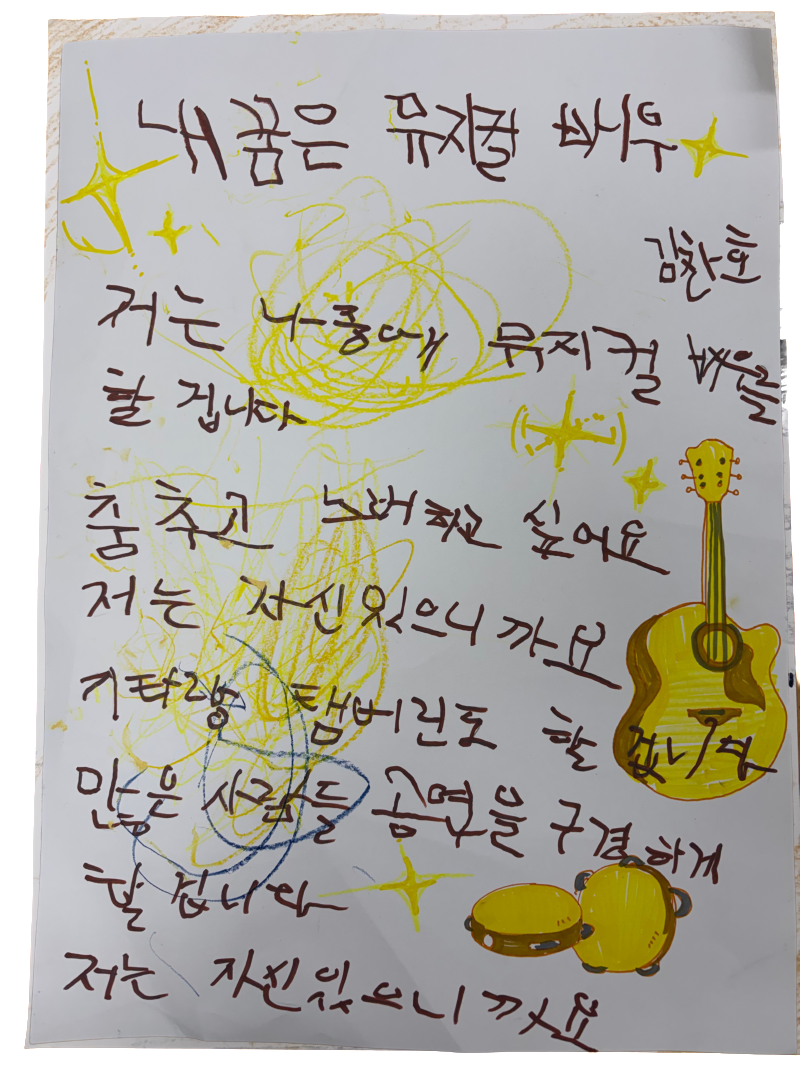 내 꿈은 뮤지컬 배우
김찬호
저는 나중에 뮤지컬 배우를
할 겁니다
춤 추고 노래 하고 싶어요
저는 자신있으니까요
기타랑 탬버린도 할 겁니다
많은 사람들 공연을 구경하게
할 겁니다
저는 자신있으니까요